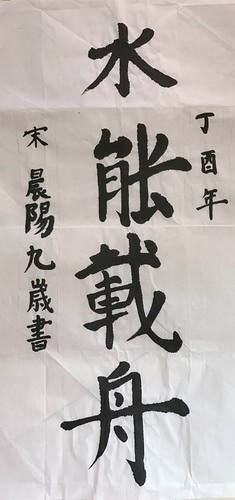 丁酉年
水能載舟
宋晨陽九歲書